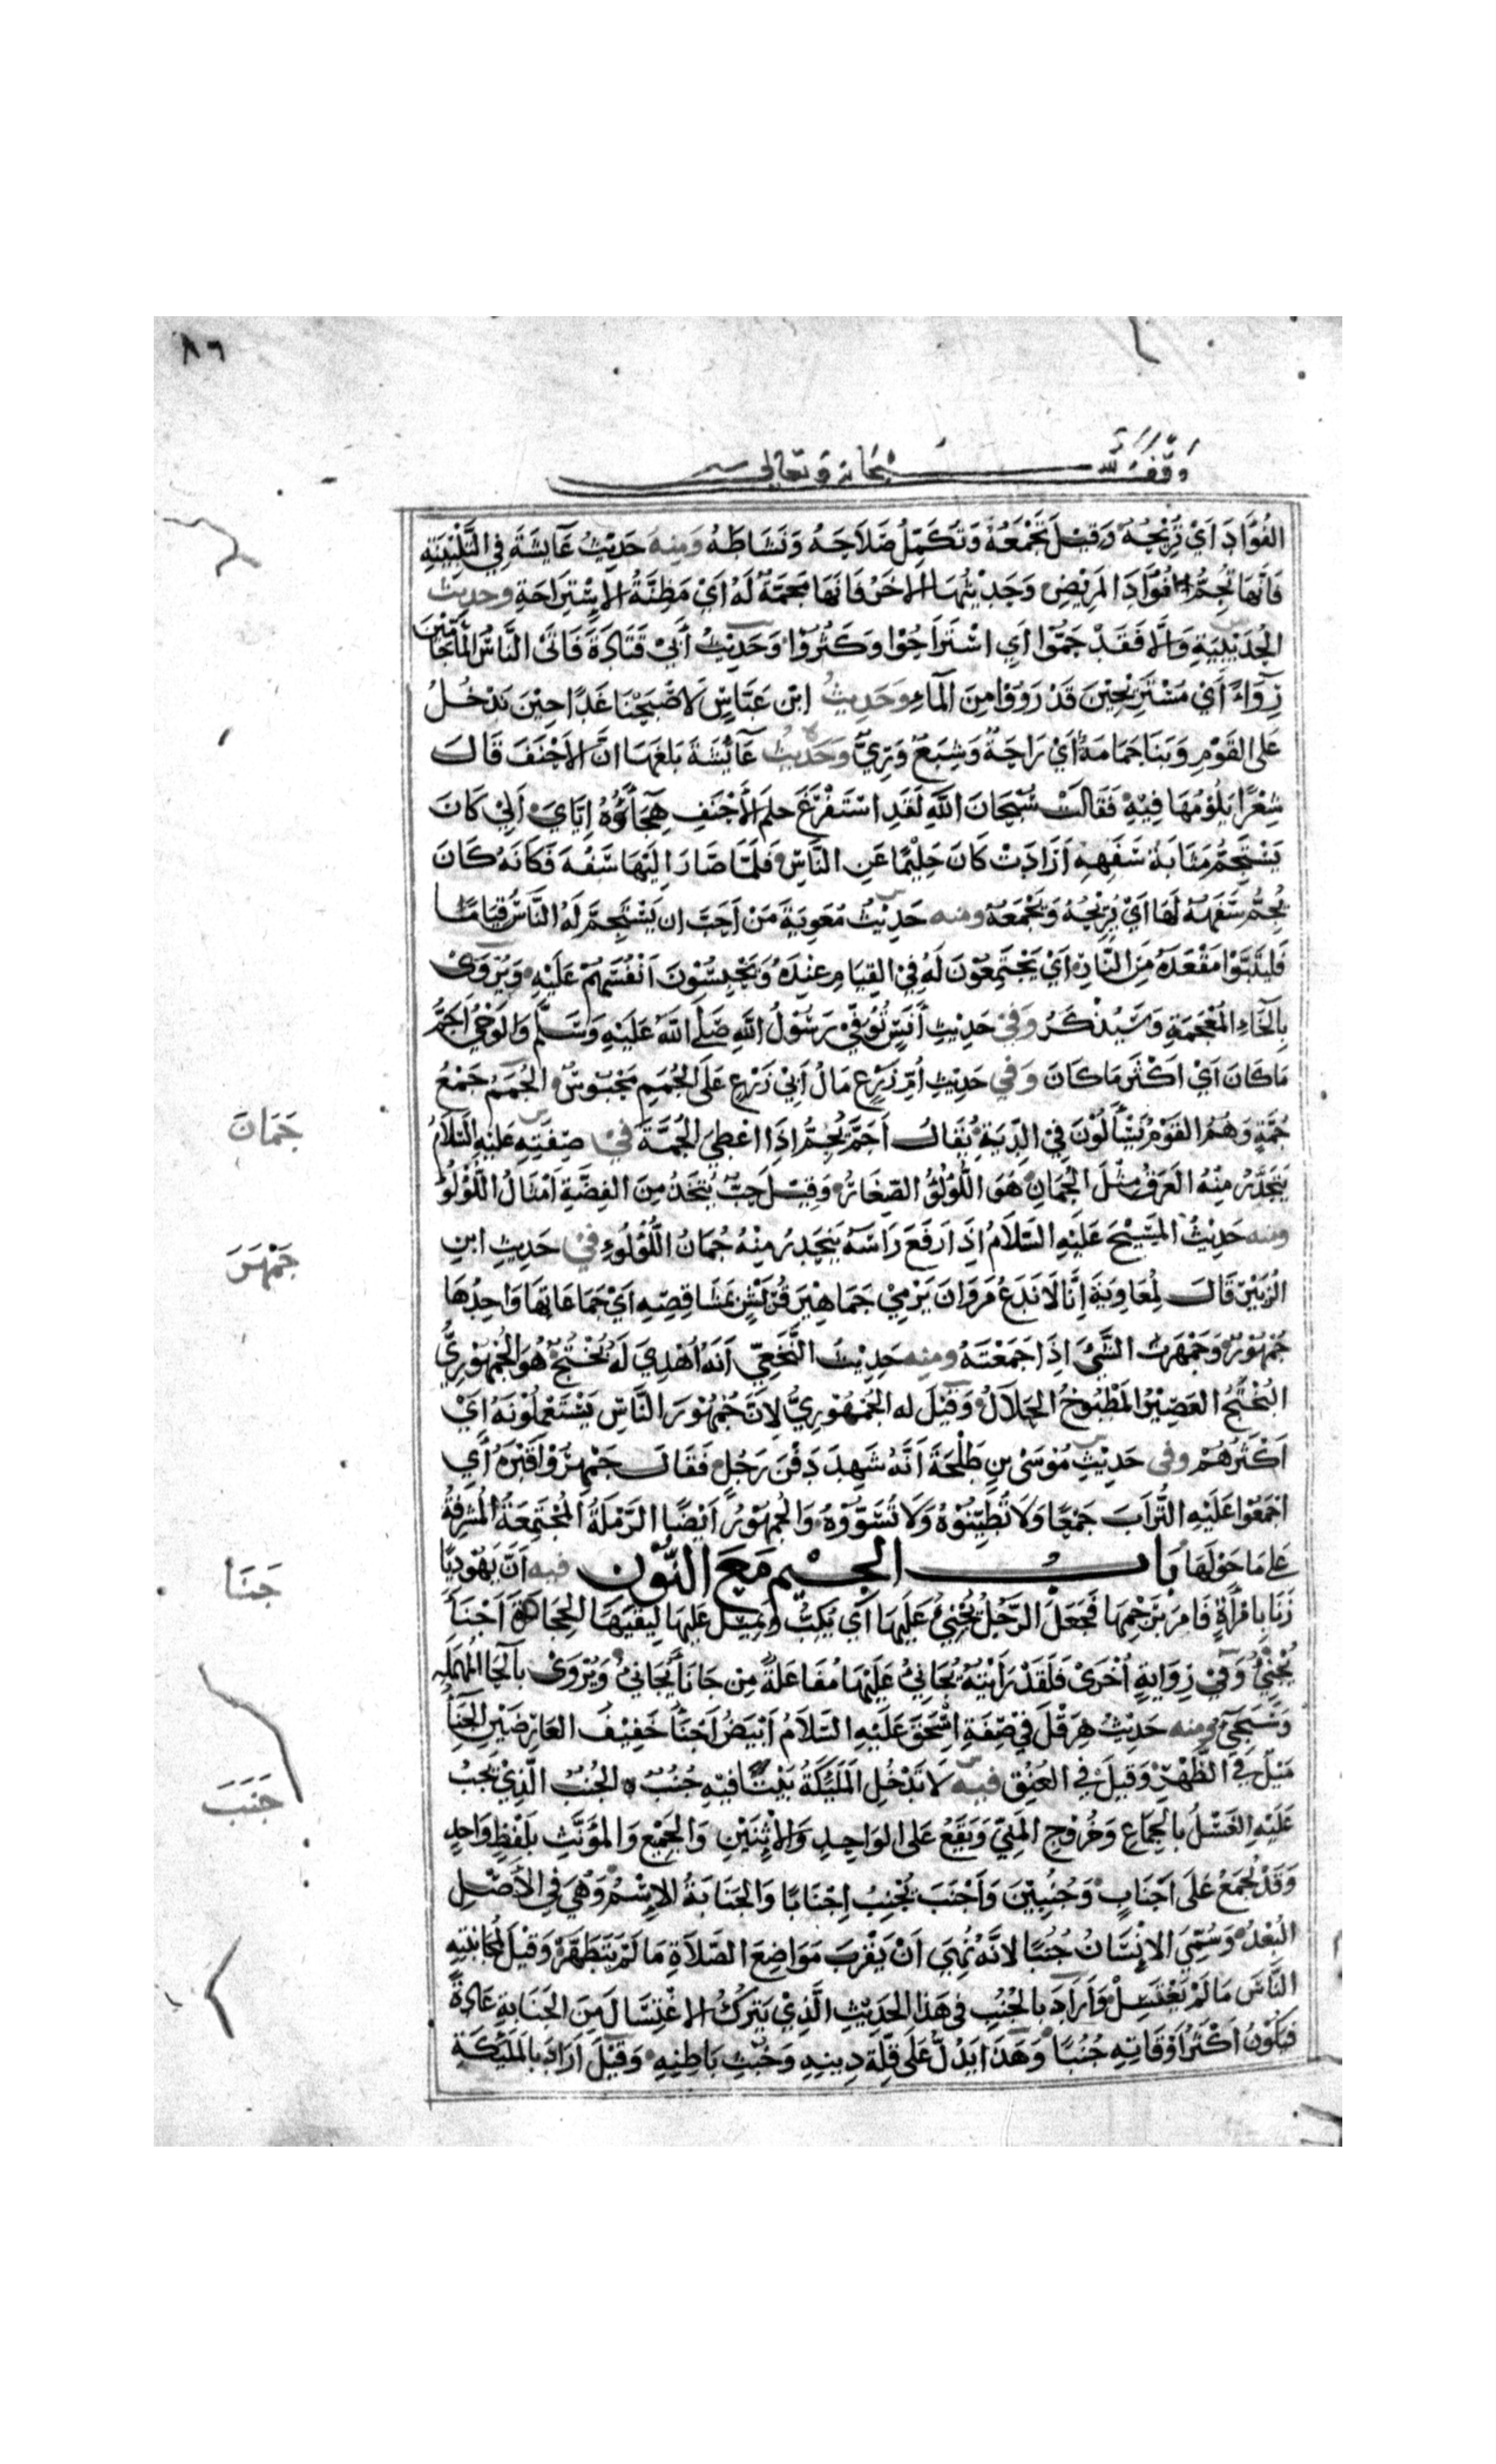 ٨٦
وقف لله سبحانه وتعالى
الفُؤَادَ اَيْ تُرِيْحُهُ وَقِيْلَ تَجْمَعُهُ وَتُكَمِّلُ صَلاَحَهُ وَنَشَاطَهُ وَمِنهُ حَدِيْثُ عَايِشَةَ فِي التَّلْبِيْنَةِ
فَاِنَّهَا تُجِمُّ فُؤَادَ المَرِيْضِ وَحَدِيْثُهَا الاخَرُ فَانَّهَا مَجَمَّةٌ لَهُ اَيْ مَظِنَّةُ الاِسْتِرَاحَةِ وحديث
الحُدَيْبِيَةِ وَاِلَّا فَقَدْ جَمُّوْا اَيِ اسْتَرَاحُوْا وَكَثُرُوْا وَحَدِيْثُ أَبِيْ قَتَادَةَ فَاتَى النَّاسُ المَاءَ جَامِّيْنَ
رِوَاءً اَيْ مُسْتَرِيْحِيْنَ قَدْ رَوُوْا مِنَ المَاءِ وَحَدِيثُ ابْنِ عَبَّاسٍ لَاصْبَحْنَا غَدًا حِيْنَ نَدْخُلُ
عَلَى القَوْمِ وَبِنَا جَمَامَةٌ اَيْ رَاحَةٌ وَشِبَعٌ وَرِيٌّ وَحَدِيثُ عَائِشَةَ بَلَغَهَا انَّ الاَحْنَفَ قَالَ
شِعْرًا يَلُوْمُهَا فِيْهِ فَقَالَتْ سُبْحَانَ اللهِ لَقَدِ اسْتَفْرَغَ حِلْمَ الاَحْنَفِ هِجَاؤُهُ اِيَّايَ اَلِيْ كَانَ
يَسْتَجِمُّ مَثَابَةَ سَفَهِهِ اَرَادَتْ كَانَ حَلِيْمًا عَنِ النَّاسِ فَلَمَّا صَارَ اِلَيْهَا سَفُهَ فَكَانَهُ كَانَ
يُجِمُّ سَفَهَهُ لَهَا اَيْ يُرِيْحُهُ وَيَجْمَعُهُ ومنه حَدِيْثُ مُعٰوِيَةَ مَنْ اَحَبَّ ان يَسْتَجِمَّ لَهُ النَّاسُ قِيَامًا
فَلْيَتَبَوَّا مَقْعَدَهُ مِنَ النَّارِ اَيْ يَجْتَمِعُوْنَ لَهُ فِي القِيَامِ عِنْدَهُ وَيَحْبِسُوْنَ اَنْفُسَهُمْ عَلَيْهِ وَيُرْوَى
بِالخَاءِ المُعْجَمَةِ وَسَيُذْكَرُ وَفِيْ حَدِيْثِ أَنَسٍ تُوُفِّيَ رَسُوْلُ اللهِ صَلَّى اللهُ عَلَيْهِ وَسَلَّمَ وَالوَحْيُ اَجَمُّ
مَا كَانَ اَيْ اَكْثَرُ مَا كَانَ وَفِي حَدِيْثِ اُمِّ زَرْعٍ مَالُ اَبِيْ زَرْعٍ عَلَى الجُمَمِ مَحْبُوسٌ الجُمَمُ جَمْعُ
جُمَّةٍ وَهُمُ القَوْمُ يَسْأَلُوْنَ فِي الدِّيَةِ يُقَالُ اَجَمَّ يُجِمُّ اِذَا اعْطِيَ الجُمَّةَ فِيْ صِفَتِهِ عَلَيْهِ السَّلاَمُ
يَتَحَدَّرُ مِنْهُ العَرَقُ مِثْلَ الجُمَانِ هُوَ اللُّؤْلُؤُ الصِّغَارُ وَقِيْلَ حَبٌّ يُتَّخَذُ مِنَ الفِضَّةِ اَمْثَالُ اللُّؤْلُؤِ
ومنه حَدِيْثُ المَسِيْحِ عَلَيْهِ السَّلَامُ اِذَا رَفَعَ رَاسَهُ يَتَحَدَّرُ مِنْهُ جُمَانُ اللُّؤْلُؤِ فِيْ حَدِيْثِ ابنِ
الزُّبَيْرِ قَالَ لِمُعَاوِيَةَ اِنَّا لَا نَدَعُ مَرْوَانَ يَرْمِيْ جَمَاهِيْرَ قُرَيْشٍ بِمَشَاقِصِهِ اَيْ جَمَاعَاتِهَا وَاحِدُهَا
جُمْهُوْرٌ وَجَمْهَرْتُ الشَّيْءَ اِذَا جَمَعْتَهُ ومنه حَدِيْثُ النَّخَعِيِّ اَنَّهُ اُهْدِيَ لَهُ بُخْتُجٌ هُوَ الجُمْهُوْرِيُّ
البُخْتُجُ العَصِيْرُ المَطْبُوْخُ الحَلاَلُ وَقِيْلَ له الجُمْهُوْرِيُّ لِانَّ جُمْهُوْرَ النَّاسِ يَسْتَعْمِلُوْنَهُ اَيْ
اَكْثَرُهُمْ وفي حَدِيْثِ مُوْسَى بْنِ طَلْحَةَ اَنَّهُ شَهِدَ دَفْنَ رَجُلٍ فَقَالَ جَمْهِرُوْا قَبْرَهُ اَيِ
اجْمَعُوْا عَلَيْهِ التُّرَابَ جَمْعًا وَلَا تُطَيِّنُوْهُ وَلَا تُسَوُّوْهُ وَالجُمْهُوْرُ اَيْضًا الرَّمْلَةُ المُجْتَمِعَةُ المُشْرِفَةُ
عَلَى مَا حَوْلَهَا بَابُ الجِيْمِ مَعَ النُّوْنِ فيه اَنَّ يَهُوْدِيًّا
زَنَا بِامْرَاَةٍ فَامَرَ بِرَجْمِهَا فَجَعَلَ الرَّجُلُ يُجْنِئُ عَلَيْهَا اَيْ يُكِبُّ وَيَمِيْلُ عَلَيْهَا لِيَقِيَهَا الحِجَارَةَ اَجْنَاَ
يُجْنِئُ وَفِيْ رِوَايَةٍ اُخْرَى فَلَقَدْ رَاَيْتُهُ يُجَانِئُ عَلَيْهَا مُفَاعَلَةٌ مِن جَانَاَ يُجَانِئُ وَيُرْوَى بِالحَاءِ المُهْمَلَةِ
وَسَيَجِيْءُ ومنه حَدِيْثُ هِرَقْلَ فِيْ صِفَةِ اِسْحٰقَ عَلَيْهِ السَّلاَمُ اَبْيَضُ اَجْنَاُ خَفِيْفُ العَارِضَيْنِ الجَنَأُ
مَيْلٌ فِي الظَّهْرِ وَقِيلَ فِي العُنُقِ فيه لَا تَدْخُلُ المَلٰئِكَةُ بَيْتًا فِيْهِ جُنُبٌ الجُنُبُ الَّذِيْ يَجِبُ
عَلَيْهِ الغُسْلُ بِالجِمَاعِ وَخُرُوْجِ المَنِيِّ وَيَقَعُ عَلَى الوَاحِدِ وَالاثْنَيْنِ وَالجَمْعِ وَالمُؤَنَّثِ بِلَفْظٍ وَاحِدٍ
وَقَدْ يُجْمَعُ عَلَى اَجْنَابٍ وَجُنُبِيْنَ وَأَجْنَبَ يُجْنِبُ اِجْنَابًا وَالجَنَابَةُ الاِسْمُ وَهِيَ فِي الاَصْلِ
البُعْدُ وَسُمِّيَ الاِنْسَانُ جُنُبًا لِانَّهُ نُهِيَ اَنْ يَقْرَبَ مَوَاضِعَ الصَّلاَةِ مَا لَمْ يَتَطَهَّرْ وَقِيْلَ لِمُجَانَبَتِهِ
النَّاسَ مَا لَمْ يَغْتَسِلْ وَاَرَادَ بِالجُنُبِ فِي هَذَا الحَدِيْثِ الَّذِيْ يَتْرُكُ الاغْتِسَالَ مِنَ الجَنَابَةِ عَادَةً
فَيَكُوْنُ اَكْثَرَ اَوْقَاتِهِ جُنُبًا وَهَذَا يَدُلُّ عَلَى قِلَّةِ دِينِهِ وَخُبْثِ بَاطِنِهِ وَقِيْلَ اَرَادَ بِالمَلٰئِكَةِ
جَمَانَ
جَمْهَرَ
جَنَأَ
جَنَبَ